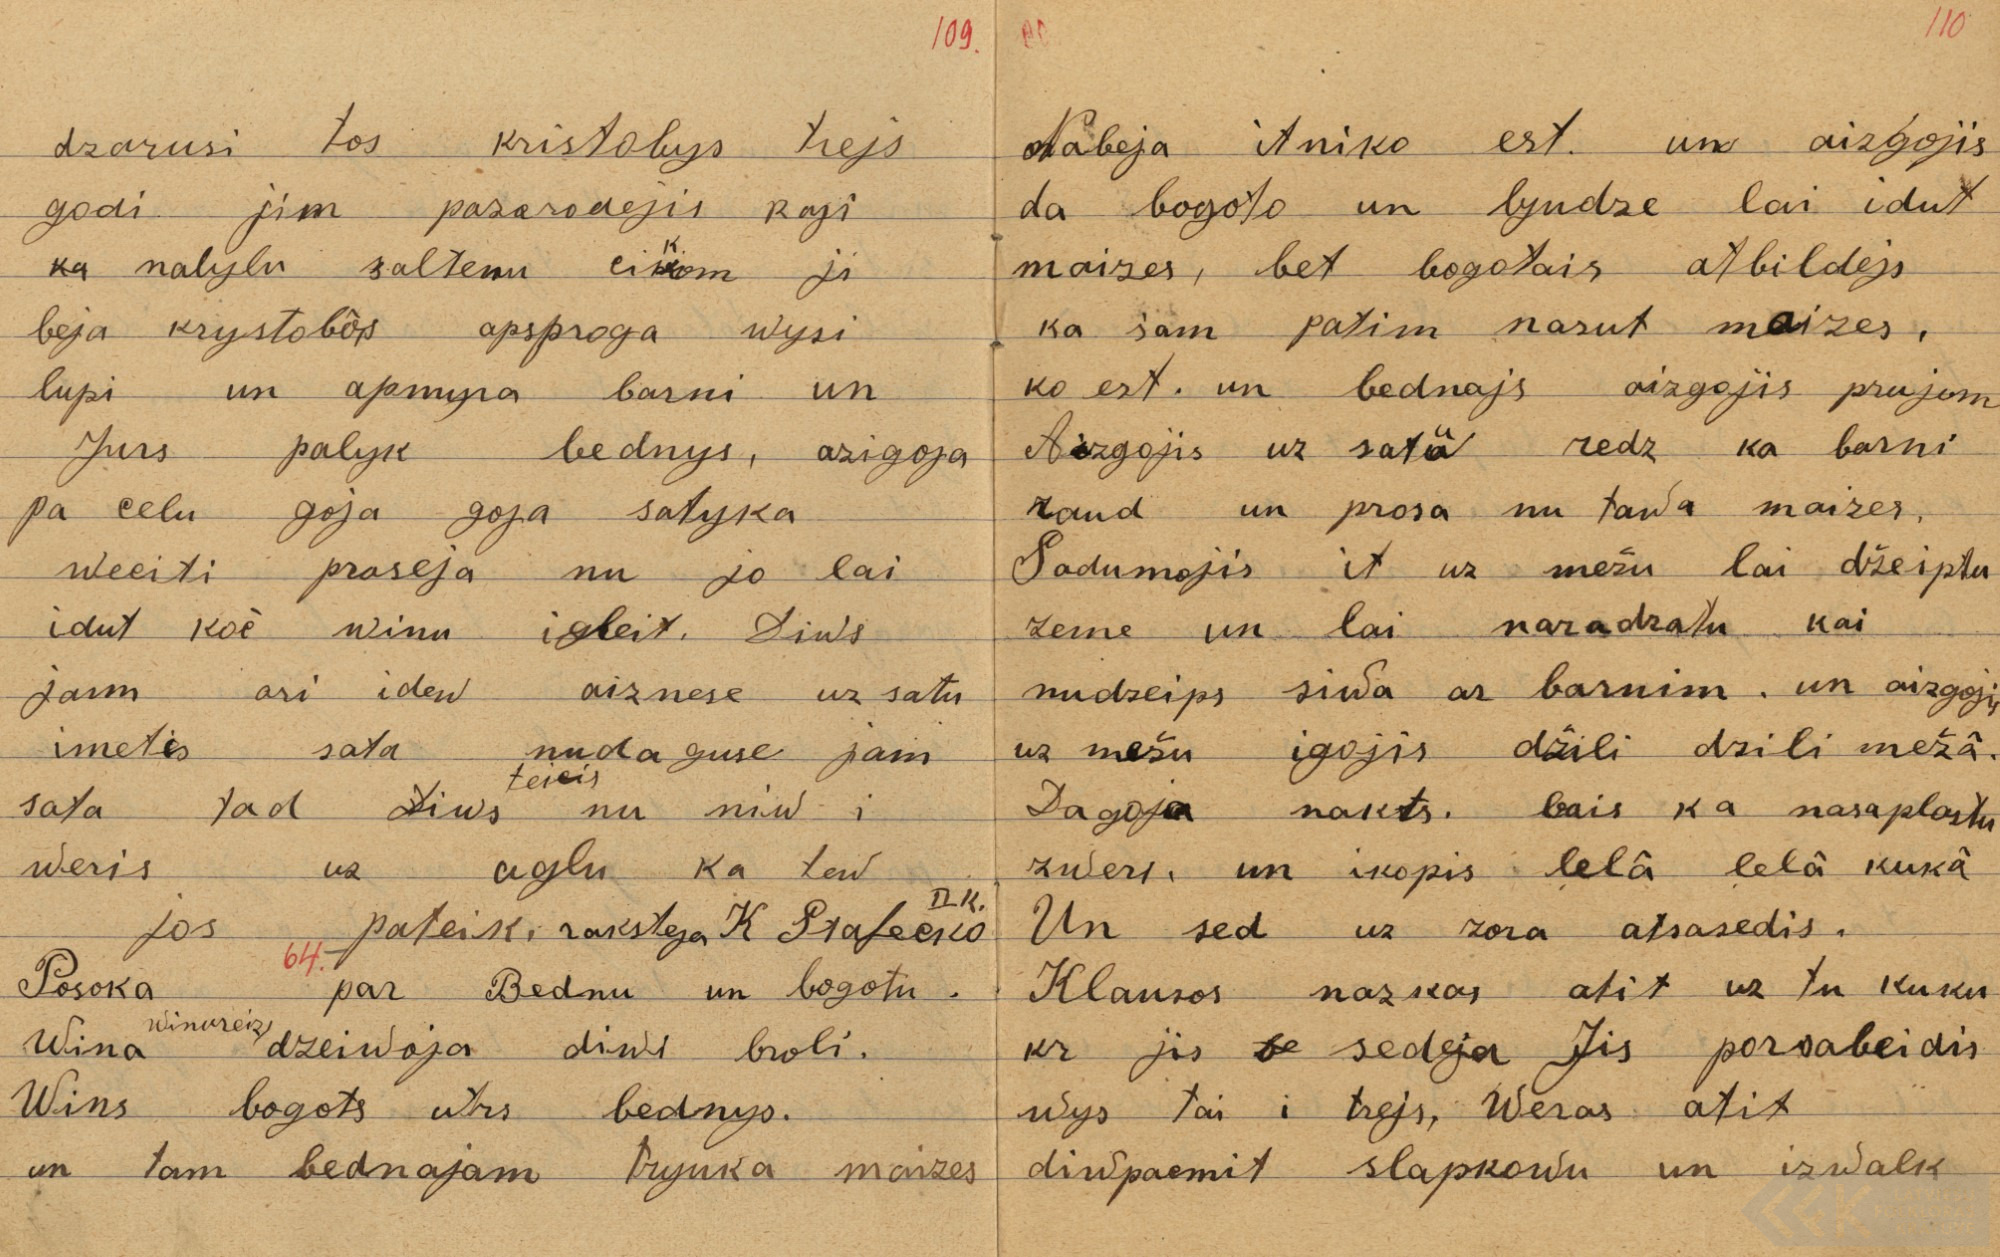 109.
dzarusi tos kristobys trejs
godi jim pazarodejis kaji
ka nalylu saltenu cikom ji
beja krystobôs apsproga wysi
lupi un apmyra barni un
Jurs palyk bednys, azigoja
pa celu goja goja satyka
weciti proseja nu jo lai
idut koč winu igleit. Diws
jam ari idew aiznese uz satu
imetis sata nudaguse jam
sata tad Diws teicis nu niw i
weris uz aglu ka tew
jos pateik. raksteja K Stafecko
II k.
64.
Posoka par Bednu un bogotu.
Wina winureiz dzeiwoja diwi broli.
Wins bogots utrs bednys.
un tam bednajam tryuka maizes
110
Nabeja itniko est. un aizgojis
da bogoto un lyudze lai idut
maizes, bet bogotais atbildejs
ka šam patim nasut maizes,
ko est. un bednajs aizgojis prujom
Aizgojis uz satu redz ka barni
raud un prosa nu tawa maizes.
Sadumojis it uz mežu lai džeiptu
zeme un lai naradzatu kai
nudzeips siwa ar barnim. un aizgojis
uz mežu igojis džili dzili mežâ.
Dagoja nakts. bais ka nasaplastu
zwers. un ikopis lelâ lelâ kukâ
Un sed uz zora atsasedis.
Klausos nazkas atit uz tu kuku
kr jis se sedeja Jis porsabeidis
wys tai i trejs, Weras atit
diwpaemit slapkowu un izwalk